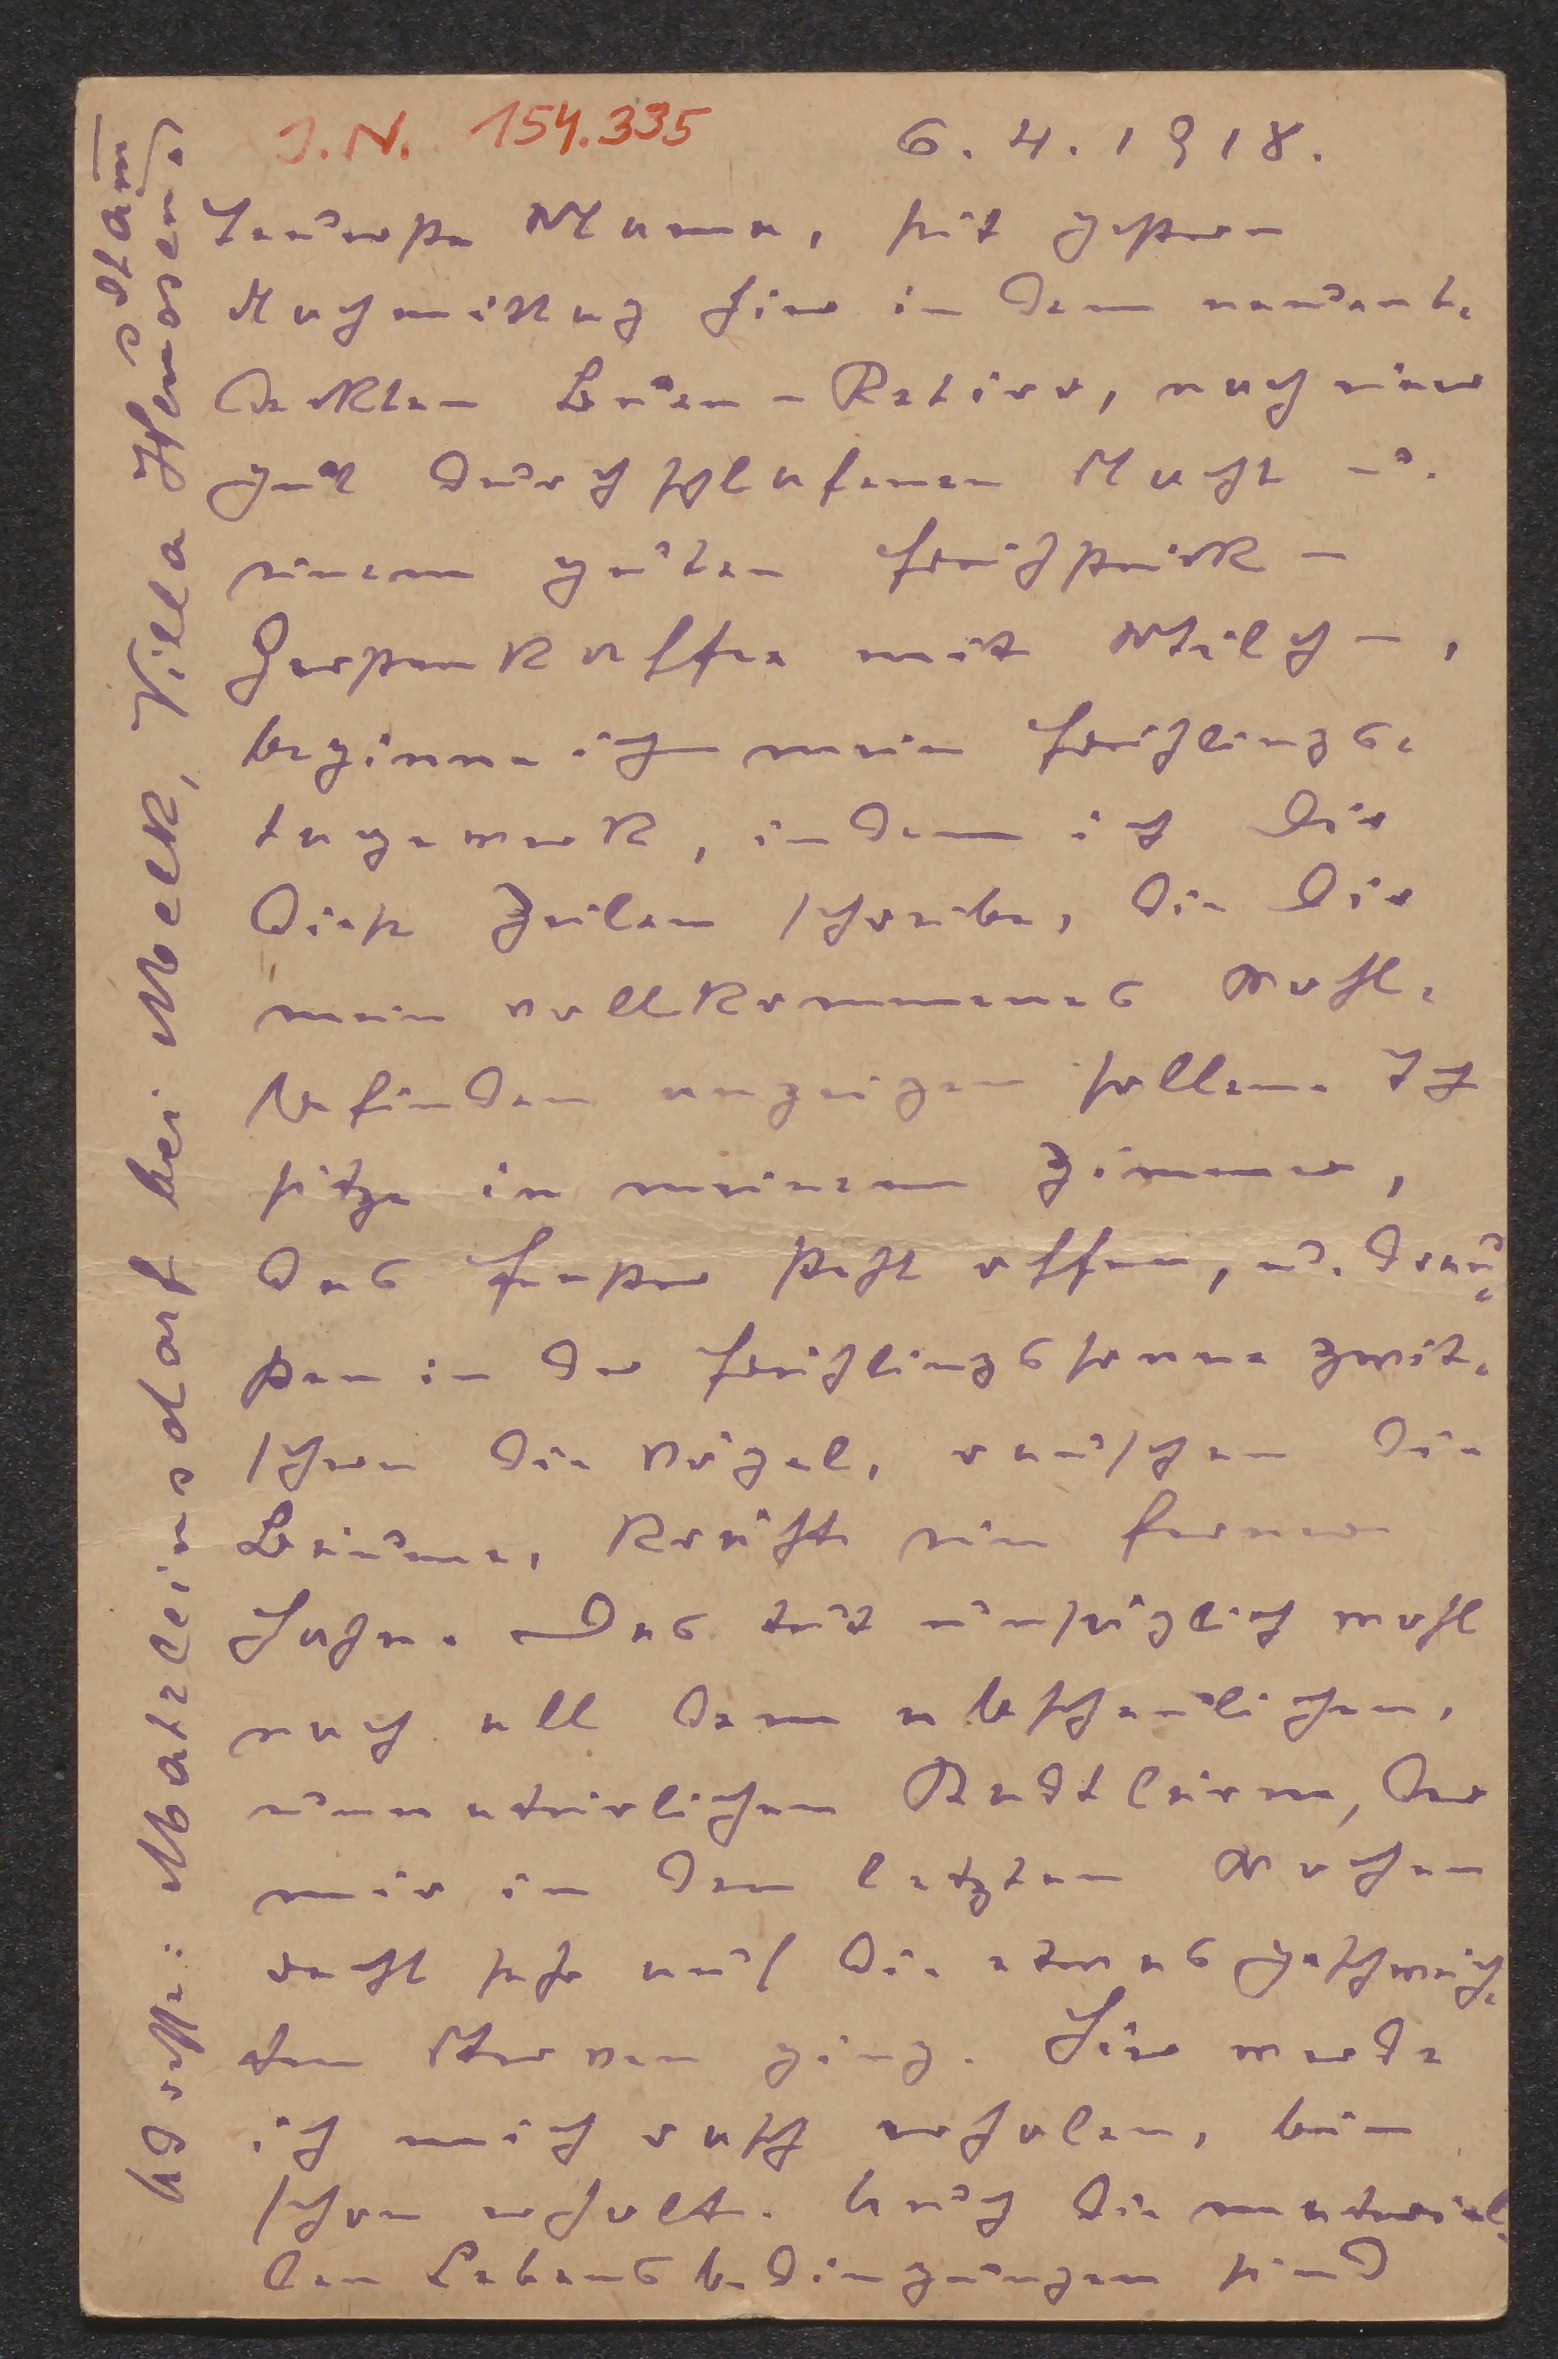 J.N. 154.335
6.4.1918.
Teuerste Mama, seit gestern
Nachmittag hier in dem neuent-
deckten Buen-Retiro, nach einer
gut durchschlafenen Nacht u.
einem guten Frühstück –
Gerstenkaffee mit Milch –,
beginne ich mein Frühlings-
tagewerk, indem ich Dir
diese Zeilen schreibe, die Dir
mein vollkommenes Wohl-
befinden anzeigen sollen. Ich
sitze in meinem Zimmer,
das Fenster steht offen, u. drau-
ßen in der Frühlingssonne zwit-
schern die Vögel, rauschen die
Bäume, kräht ein ferner
Hahn. Das tut unsäglich wohl
nach all dem abscheulichen,
unnatürlichen Stadtlärm, der
mir in den letzten Wochen
recht sehr auf die etwas geschwäch-
ten Nerven ging. Hier werde
ich mich rasch erholen, bin
schon erholt. Auch die materiel-
len Lebensbedingungen sind
Adresse: Matzleinsdorf bei Melk, Villa